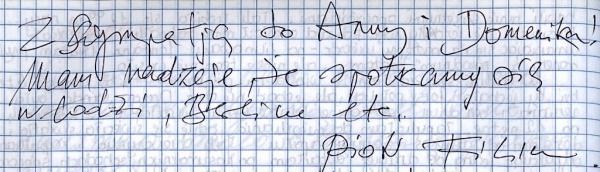 Z sympatją do Anny i Domenika!
Mam nadzieje, że spotkamy się
w Łodzi, Berlinie etc.